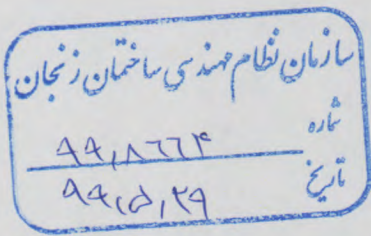 سازمان نظام مهندسی ساختمان زنجان
شماره ۹۹,۸۶۶۴
تاریخ ۹۹,۵,۲۹